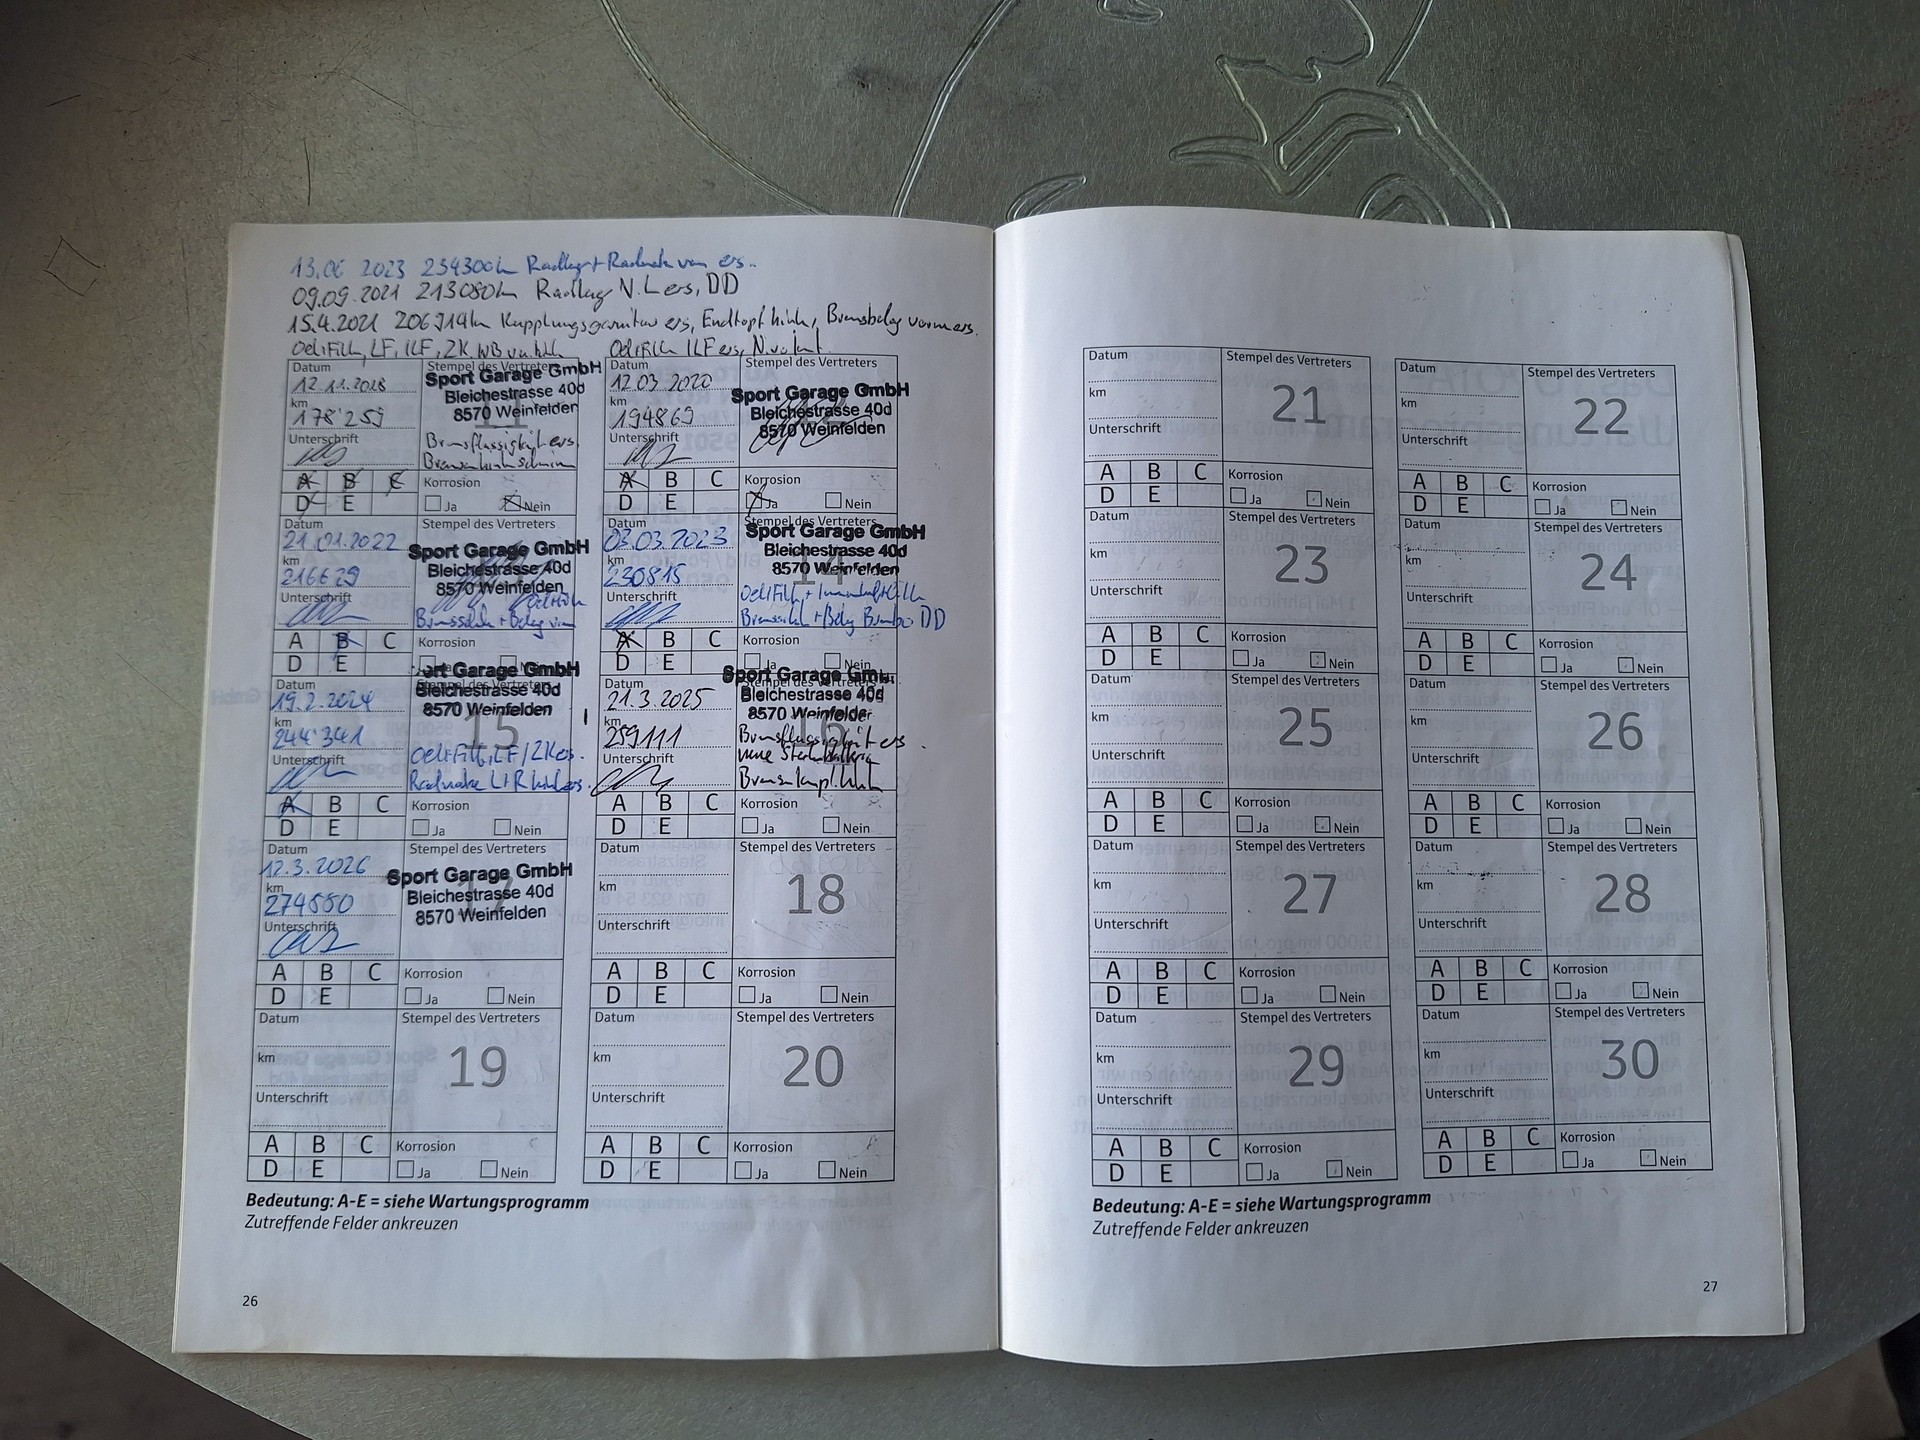 13.06 2023 234300km Radlager + Radnabe vorn ers.
09.09.2021 213080km Radlager V.L ers, DD
15.4.2021 206914km Kupplungsgarnitur ers, Endtopf hint, Bremsbelag vorn ers.
Oel+Filt, LF, ILF, ZK, WB
Oel+Filt ILF ers,
Datum
12.11.2018
km
178'259
Unterschrift
Stempel des Vertreters
Sport Garage GmbH
Bleichestrasse 40d
8570 Weinfelden
Bremsflüssigkeit ers.
A B C
D E
Korrosion
Ja Nein
Datum
12 03 2020
km
194869
Unterschrift
Sport Garage GmbH
Bleichestrasse 40d
8570 Weinfelden
A B C
D E
Korrosion
Ja Nein
Datum
21.01.2022
km
216629
Unterschrift
Stempel des Vertreters
Sport Garage GmbH
Bleichestrasse 40d
8570 Weinfelden
Oel+Filt
A B C
D E
Korrosion
Datum
03.03.2023
km
230815
Unterschrift
Stempel des Vertreters
Sport Garage GmbH
Bleichestrasse 40d
8570 Weinfelden
14
Oel+Filt + Innenluftfilt
A B C
D E
Korrosion
Ja Nein
Datum
19.2.2024
km
244'341
Unterschrift
Sport Garage GmbH
Bleichestrasse 40d
8570 Weinfelden
15
Oel+Filt, LF/ZK ers.
Radnabe L+R hint ers.
A B C
D E
Korrosion
Ja Nein
Datum
21.3.2025
km
259111
Unterschrift
Stempel des Vertreters
Sport Garage GmbH
Bleichestrasse 40d
8570 Weinfelden
Bremsflüssigkeit ers
neue Starterbatterie
A B C
D E
Korrosion
Ja Nein
Datum
12.3.2026
km
274880
Unterschrift
Stempel des Vertreters
Sport Garage GmbH
Bleichestrasse 40d
8570 Weinfelden
17
A B C
D E
Korrosion
Ja Nein
Datum
km
Unterschrift
Stempel des Vertreters
18
A B C
D E
Korrosion
Ja Nein
Datum
km
Unterschrift
Stempel des Vertreters
19
A B C
D E
Korrosion
Ja Nein
Datum
km
Unterschrift
Stempel des Vertreters
20
A B C
D E
Korrosion
Ja Nein
Bedeutung: A-E = siehe Wartungsprogramm
Zutreffende Felder ankreuzen
26
Datum
km
Unterschrift
Stempel des Vertreters
21
A B C
D E
Korrosion
Ja Nein
Datum
km
Unterschrift
Stempel des Vertreters
22
A B C
D E
Korrosion
Ja Nein
Datum
km
Unterschrift
Stempel des Vertreters
23
A B C
D E
Korrosion
Ja Nein
Datum
km
Unterschrift
Stempel des Vertreters
24
A B C
D E
Korrosion
Ja Nein
Datum
km
Unterschrift
Stempel des Vertreters
25
A B C
D E
Korrosion
Ja Nein
Datum
km
Unterschrift
Stempel des Vertreters
26
A B C
D E
Korrosion
Ja Nein
Datum
km
Unterschrift
Stempel des Vertreters
27
A B C
D E
Korrosion
Ja Nein
Datum
km
Unterschrift
Stempel des Vertreters
28
A B C
D E
Korrosion
Ja Nein
Datum
km
Unterschrift
Stempel des Vertreters
29
A B C
D E
Korrosion
Ja Nein
Datum
km
Unterschrift
Stempel des Vertreters
30
A B C
D E
Korrosion
Ja Nein
Bedeutung: A-E = siehe Wartungsprogramm
Zutreffende Felder ankreuzen
27